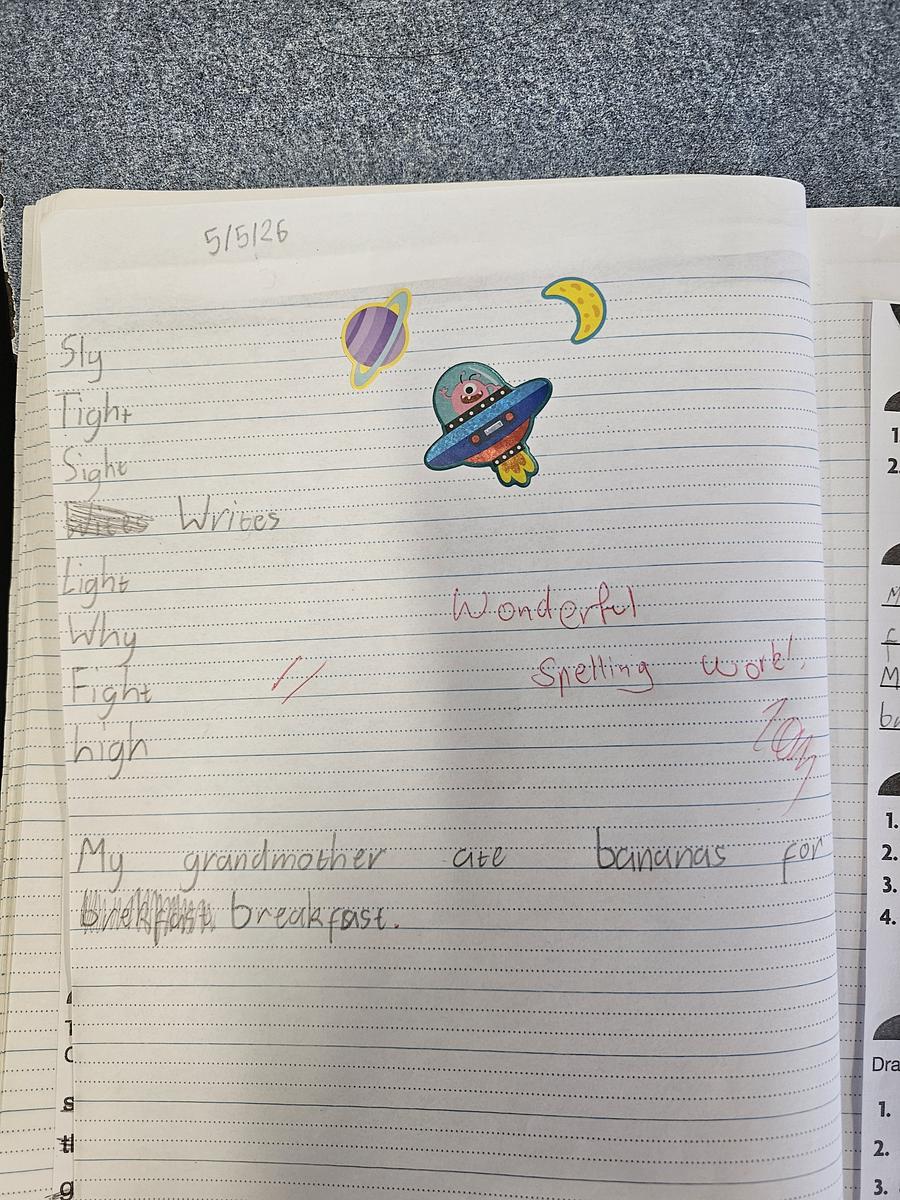 5/5/26
Sly
Tight
Sight
Writes
Light
Why
Fight
high
Wonderful
Spelling work!
My grandmother ate bananas for
breakfast.
1.
2.
M
f
M
br
1.
2.
3.
4.
Dra
1.
2.
3.